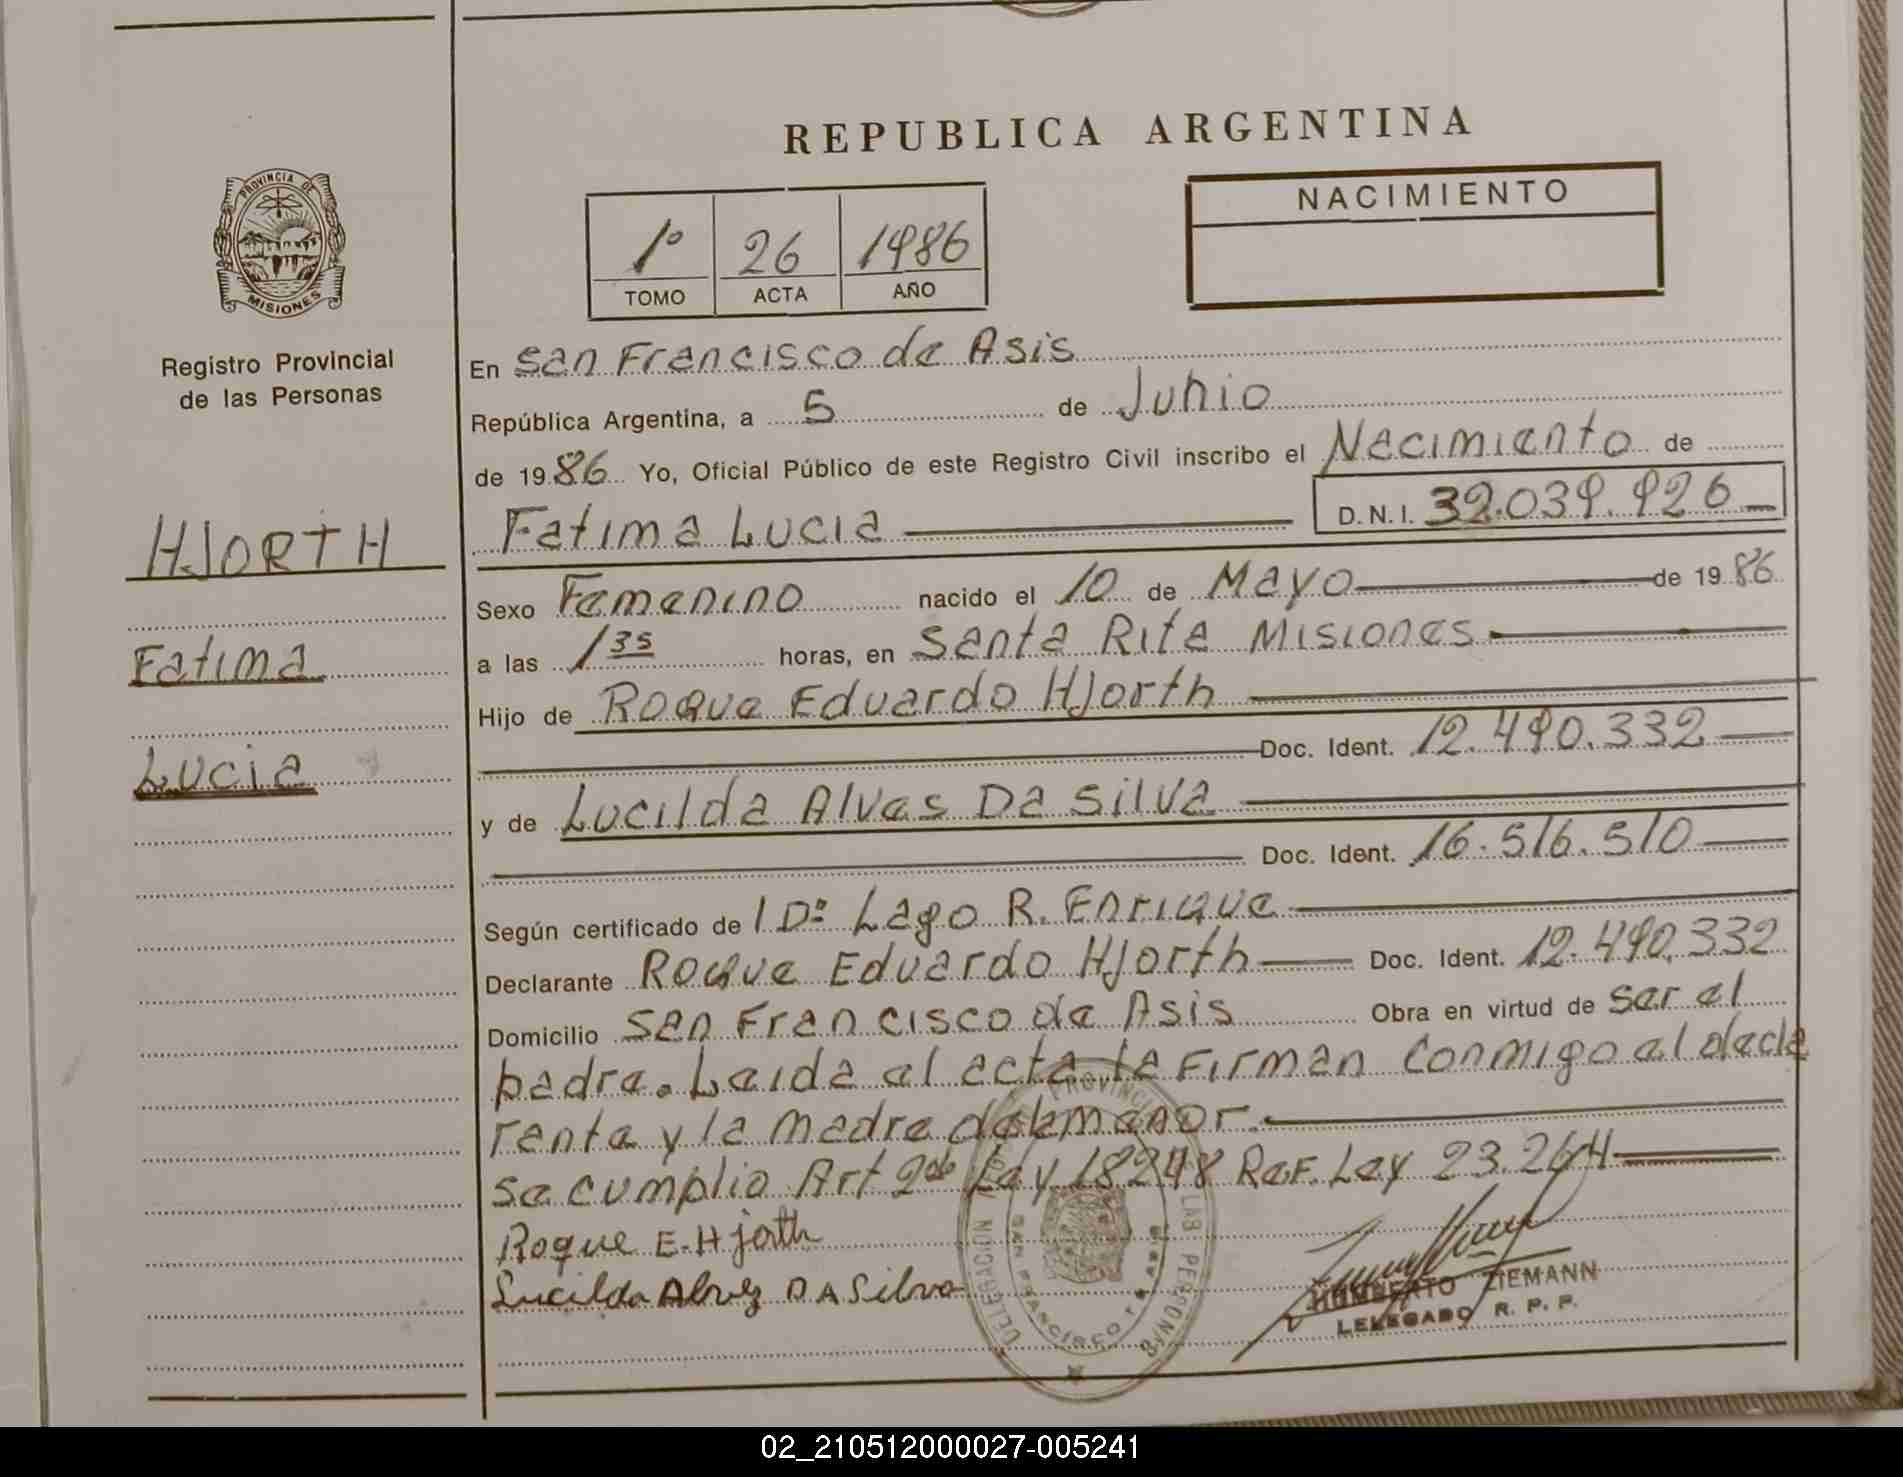 REPUBLICA ARGENTINA
PROVINCIA DE
MISIONES
Registro Provincial
de las Personas
HJORTH
Fatima
Lucia
1º 26 1986
TOMO ACTA AÑO
NACIMIENTO
En San Francisco de Asis
República Argentina, a 5 de Junio
de 1986 Yo, Oficial Público de este Registro Civil inscribo el Nacimiento de
Fatima Lucia D.N.I. 32.039.926
Sexo Femenino nacido el 10 de Mayo de 1986
a las 1 35 horas, en Santa Rita Misiones
Hijo de Roque Eduardo HJorth
Doc. Ident. 12.490.332
y de Lucilda Alves Da Silva
Doc. Ident. 16.516.510
Según certificado de 1 Dº Lago R. Enrique
Declarante Roque Eduardo HJorth Doc. Ident. 12.490.332
Domicilio San Francisco de Asis Obra en virtud de ser el
padre. Leida el acta la Firman Conmigo el decla
rente y la madre del menor.
se cumplio Art 2do Ley 18248 Ref. Ley 23.264
Roque E. Hjorth
Lucilda Alvez DA Silva
DELEGACION SAN FRANCISCO
HUMBERTO ZIEMANN
DELEGADO R. P. P.
02_210512000027-005241